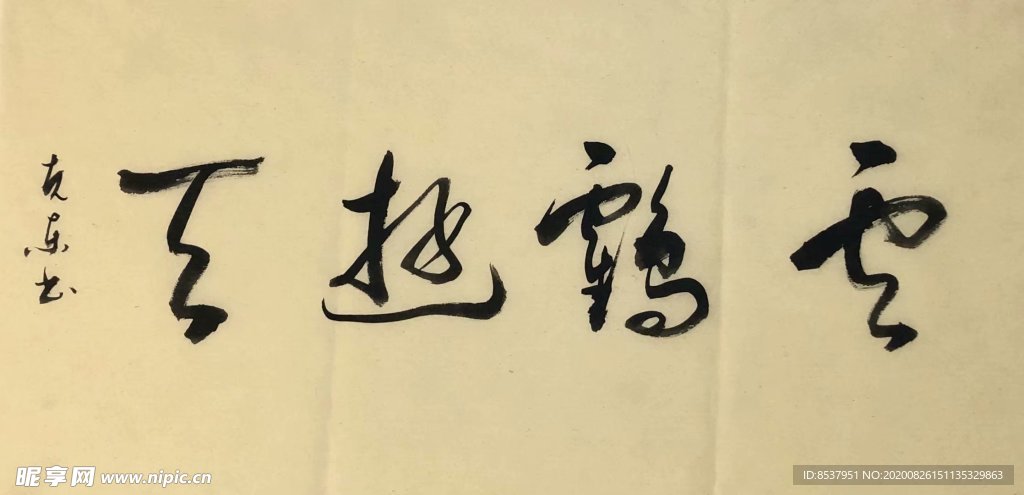 雲鶴遊天
克東书
昵享网 www.nipic.cn
ID:8537951 NO:20200826151135329863